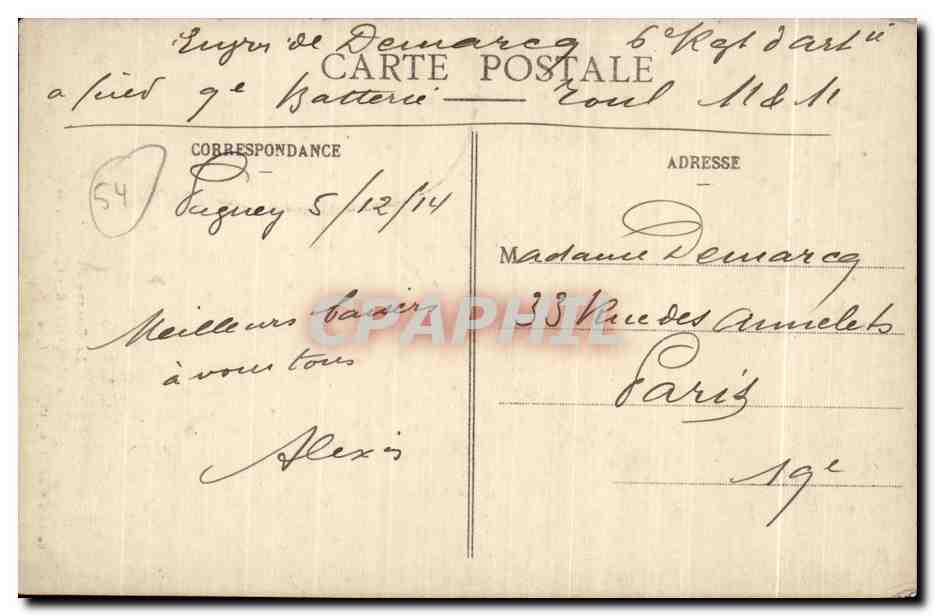 Envoi de Demarcq 6e Rgt d'artie
CARTE POSTALE
a pied 9e Batterie — Toul M & M
CORRESPONDANCE
ADRESSE
54
Pagney 5/12/14
Madame Demarcq
Meilleurs baisers
CPAPHIL
33 Rue des Annelets
à vous tous
Paris
Alexis
19e